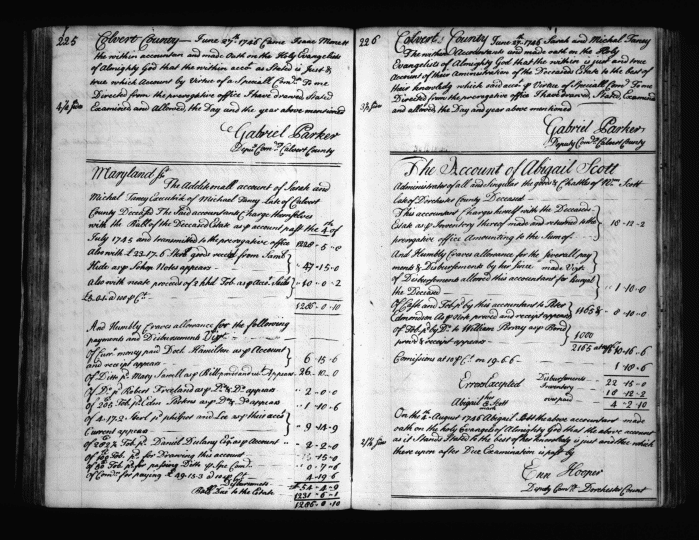 225
Colvert County June 27th 1746 Came Isaac
the within accountant and made oath on the Holy Evangelists
of Almighty God that the within acct as Stated is Just &
true which Account by Virtue of a Speciall Comn To me
Directed from the prerogative office I have drawed, Stated
Examined and Allowed, the Day and the year above mentioned
Gabriel Parker
Depty Comry Calvert County
Maryland ss
The Additionall account of Sarah and
Michal Taney Executrix of Michael Taney late of Calvert
County Deceased The Said accountants Charge themselves
with the Ball of the Deceased Estate as p account past the 4 of
July 1745 and transmitted to the prerogative office 1228-5-0
Also with £ 22.17.6
appears 47-15-0
Also with neate proceeds of 2 hhds Tob. 10-0-2
1286-0-10
And Humbly Craves allowance for the following
payments and Disbursements Vizt
Of Curr money paid Doct Hamilton as p Account
and receipt appears 6-15-6
Of Ditto pd Mary Smith as p Bill and receipt Appears 26-10-0
Of Do pd Robert Freeland as p Do & Do appears 2-0-0
Of Tob. pd Eden as p Do & Do appears 1-10-6
of 4-17.2 Sterl pd phelpost and Lee as p their acct
Current appears 9-14-9
Of Tob. pd Daniel Dulany Esqr as p account 2-2-0
of Tob. pd for Drawing this account 15-0
of Tob. pd for passing Ditto 0-7-6
of Comn for paying £ 49.15.3 4-19-6
Disbursments 54-4-9
Ball. Due to the Estate 1231-6-1
1286-0-10
226
Colvert County June 27. 1746 Sarah and Michal Taney
The within Accountants and made oath on the Holy
Evangelists of Almighty God that the within is just and true
Account of their Administration of the Deceaseds Estate to the best of
their knowledg which said acct p Virtue of a Speciall Comn To me
Directed from the prerogative office I have drawed, Stated, Examined
and allowed, the Day and year above mentioned
Gabriel Parker
Deputy Comry Calvert County
The Account of Abigail Scott
Administrator of all and Singular the goods & Chattles of Wm Scott
late of Dorchester County Deceased
This accountant Charges himself with the Deceaseds
Estate as p Inventory thereof made and returned to the
prerogative office Amounting to the Sume of 18-12-2
And Humbly Craves allowance for the severall pay
ments & Disbursements by her Since made Vizt
Of Disbursements allowed this accountant for
the Deceased 1-10-0
Of Cash and Tob. pd by this accountant to Peter
Edmondson as p note proved and receipt appears 1165 & 0-10-0
of Tob. pd by Do to William Perray as p Bond
proved & receipt appears 1000
2165 18-16-6
Comissions at 10 p Ct on 19.6.6 1-18-6
Errors Excepted
Disbursements 22 15-0
Inventory 18-12-2
overpaid 4-2-10
Abigail her mark Scott
On the 4th August 1746 Abigail Scott the above accountant made
oath on the holy Evangelists of Almighty God that the above account
as it Stands Stated to the best of her knowledg is just and true which
there upon after Due Examination is past by
Enn Hooper
Deputy Comry Dorchester Count